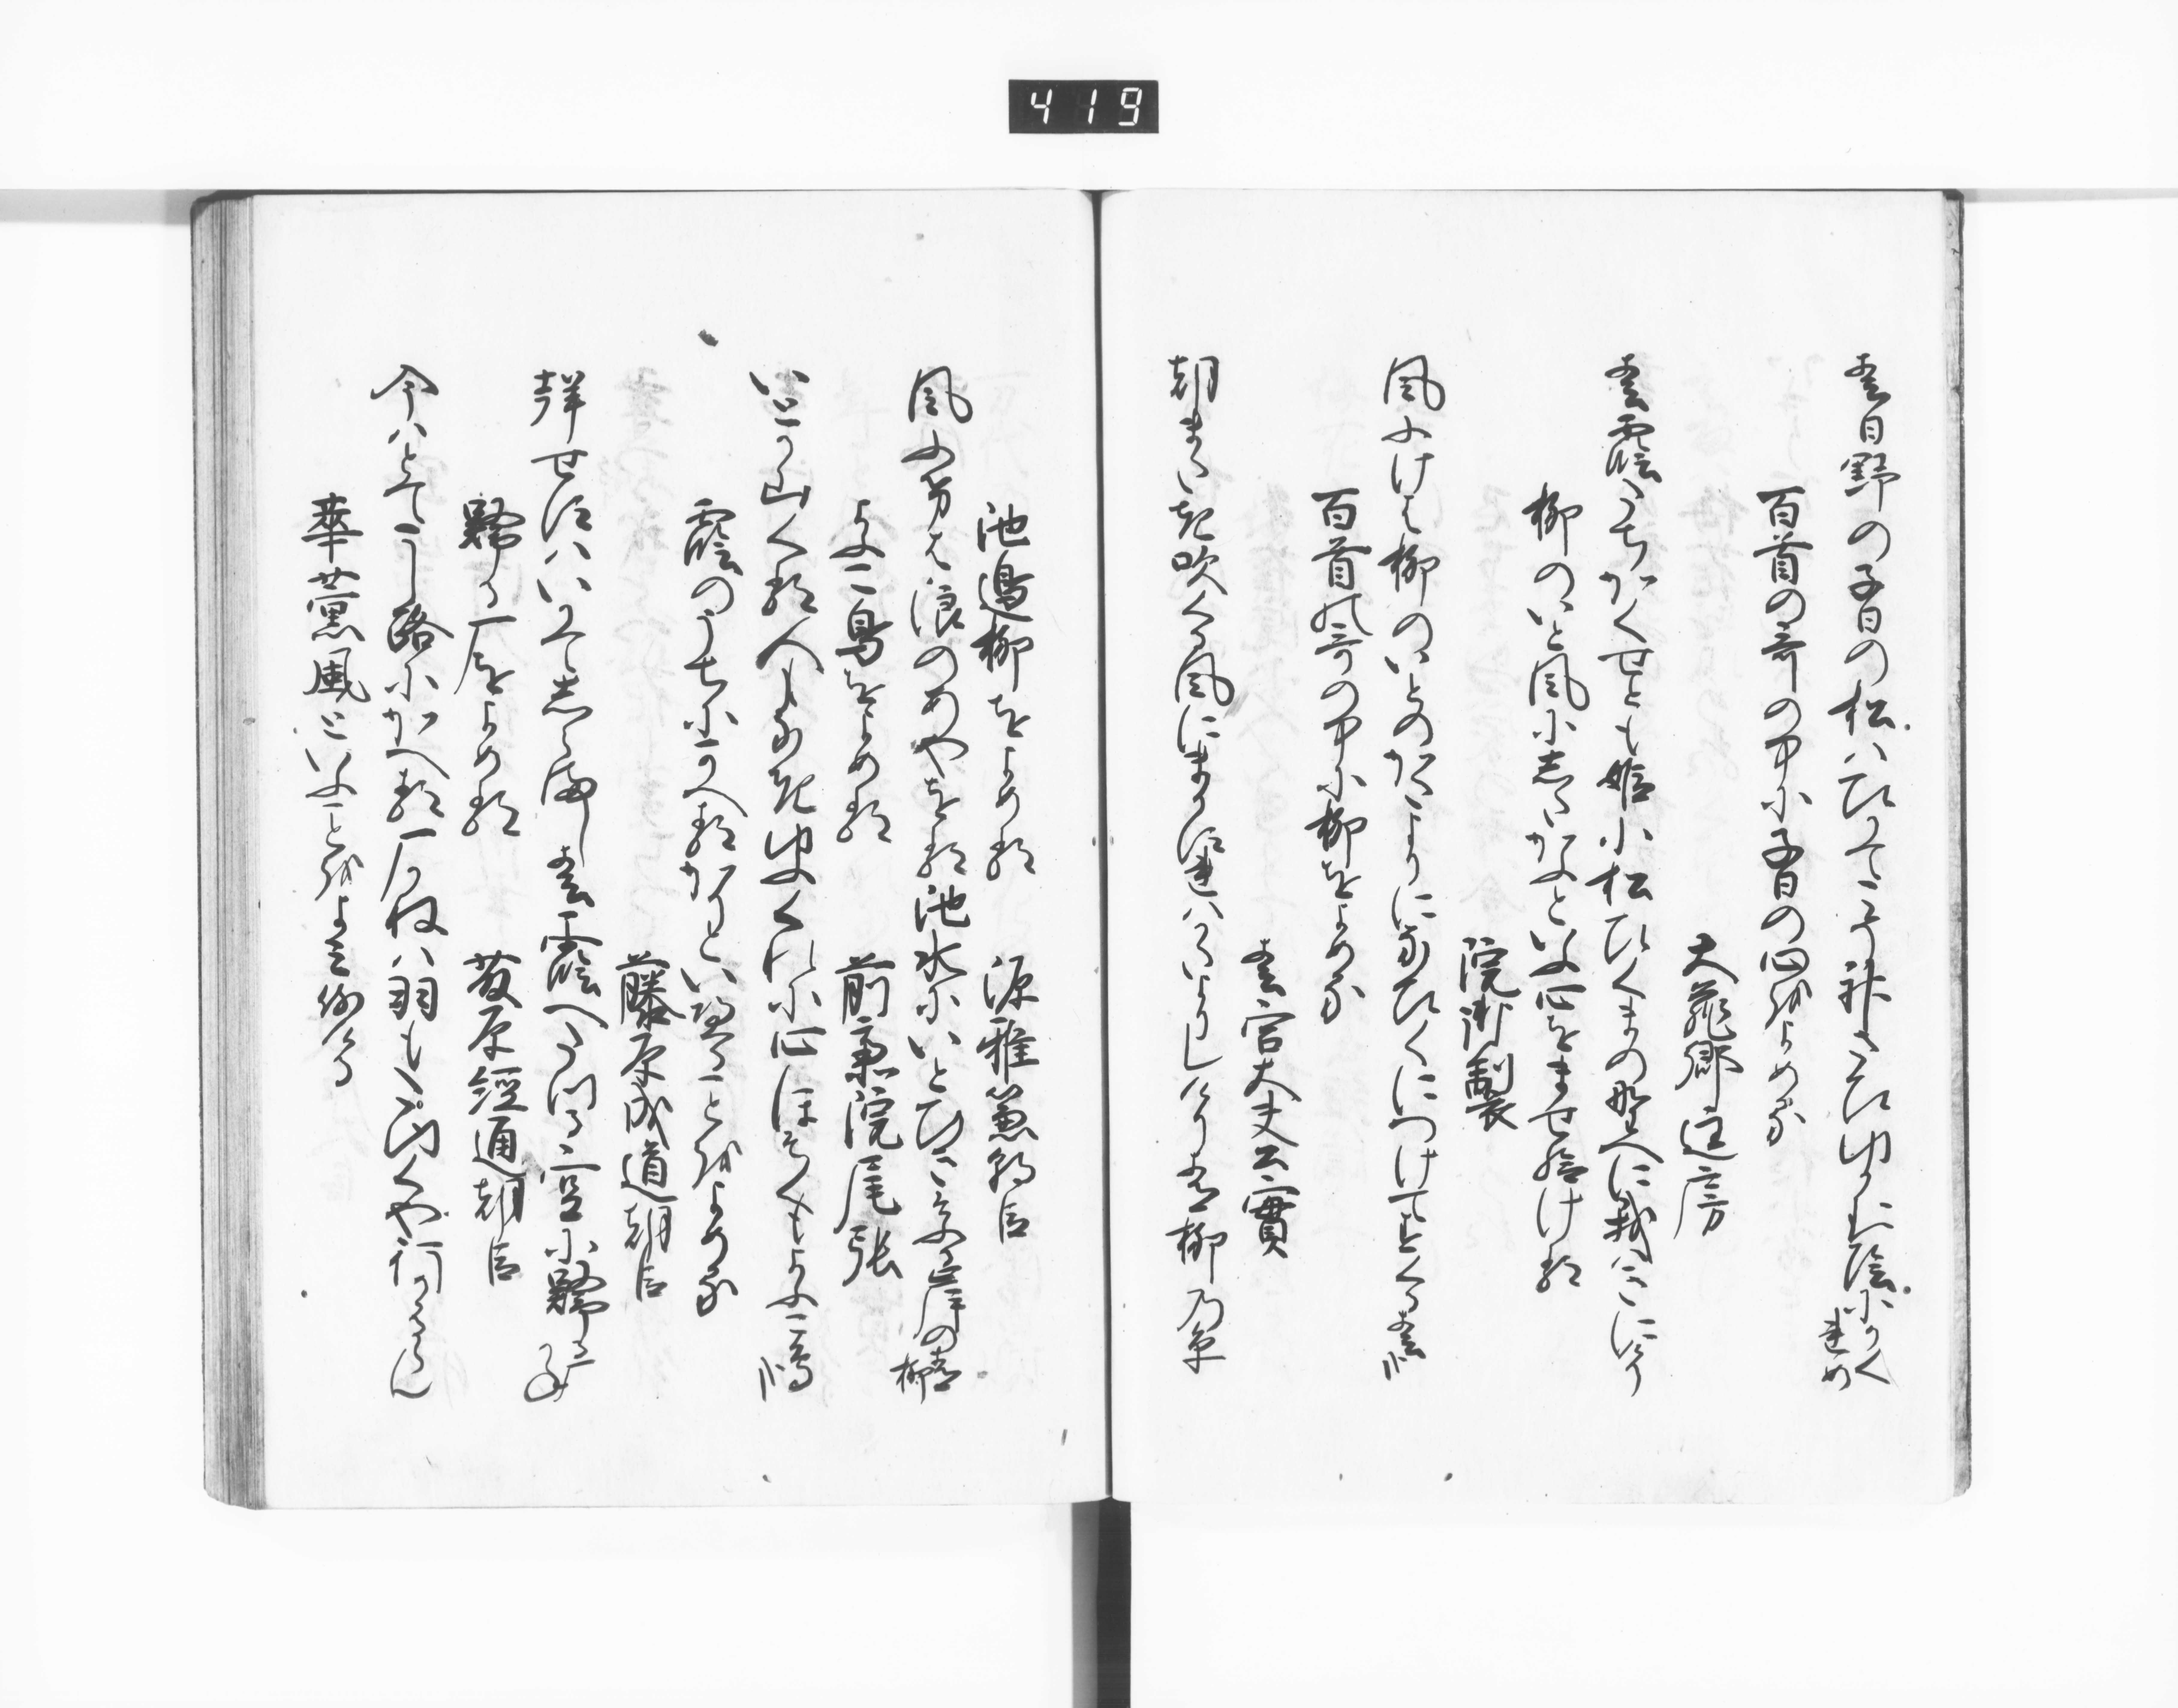 419
春日野の子日の松ハひかてこそ神さひゆかむ陰にかくれめ
百首の哥の中に子日の心をよめる
大蔵卿匡房
春霞たちかくせとも姫小松ひくまの野へに我はきにけり
柳のいと風にしたかふといふ心をませ給ける
院御製
風ふけは柳のいとのかたよりになひくにつけてすくる春哉
百首哥の中に柳をよめる
春宮大夫公實
朝またき吹くる風にまかすれハかたよりしけり青柳乃糸
池邊柳をよめる　源雅兼朝臣
風ふけは浪のあやをる池水にいとひきそふる岸の青柳
よふこ鳥をよめる　前斎院尾張
いとか山くる人もなき夕くれに心ほそくもよふこ鳥哉
霞のうちにかへるかりといふことをよめる
藤原成通朝臣
聲せすハいかてしらまし春霞へたつる空に歸るかりかね
歸る厂をよめる　藤原經通朝臣
今ハとてこし路にかへる厂かねハ羽もたゆくや行かへるらん
華薫風といふことをよみ侍ける